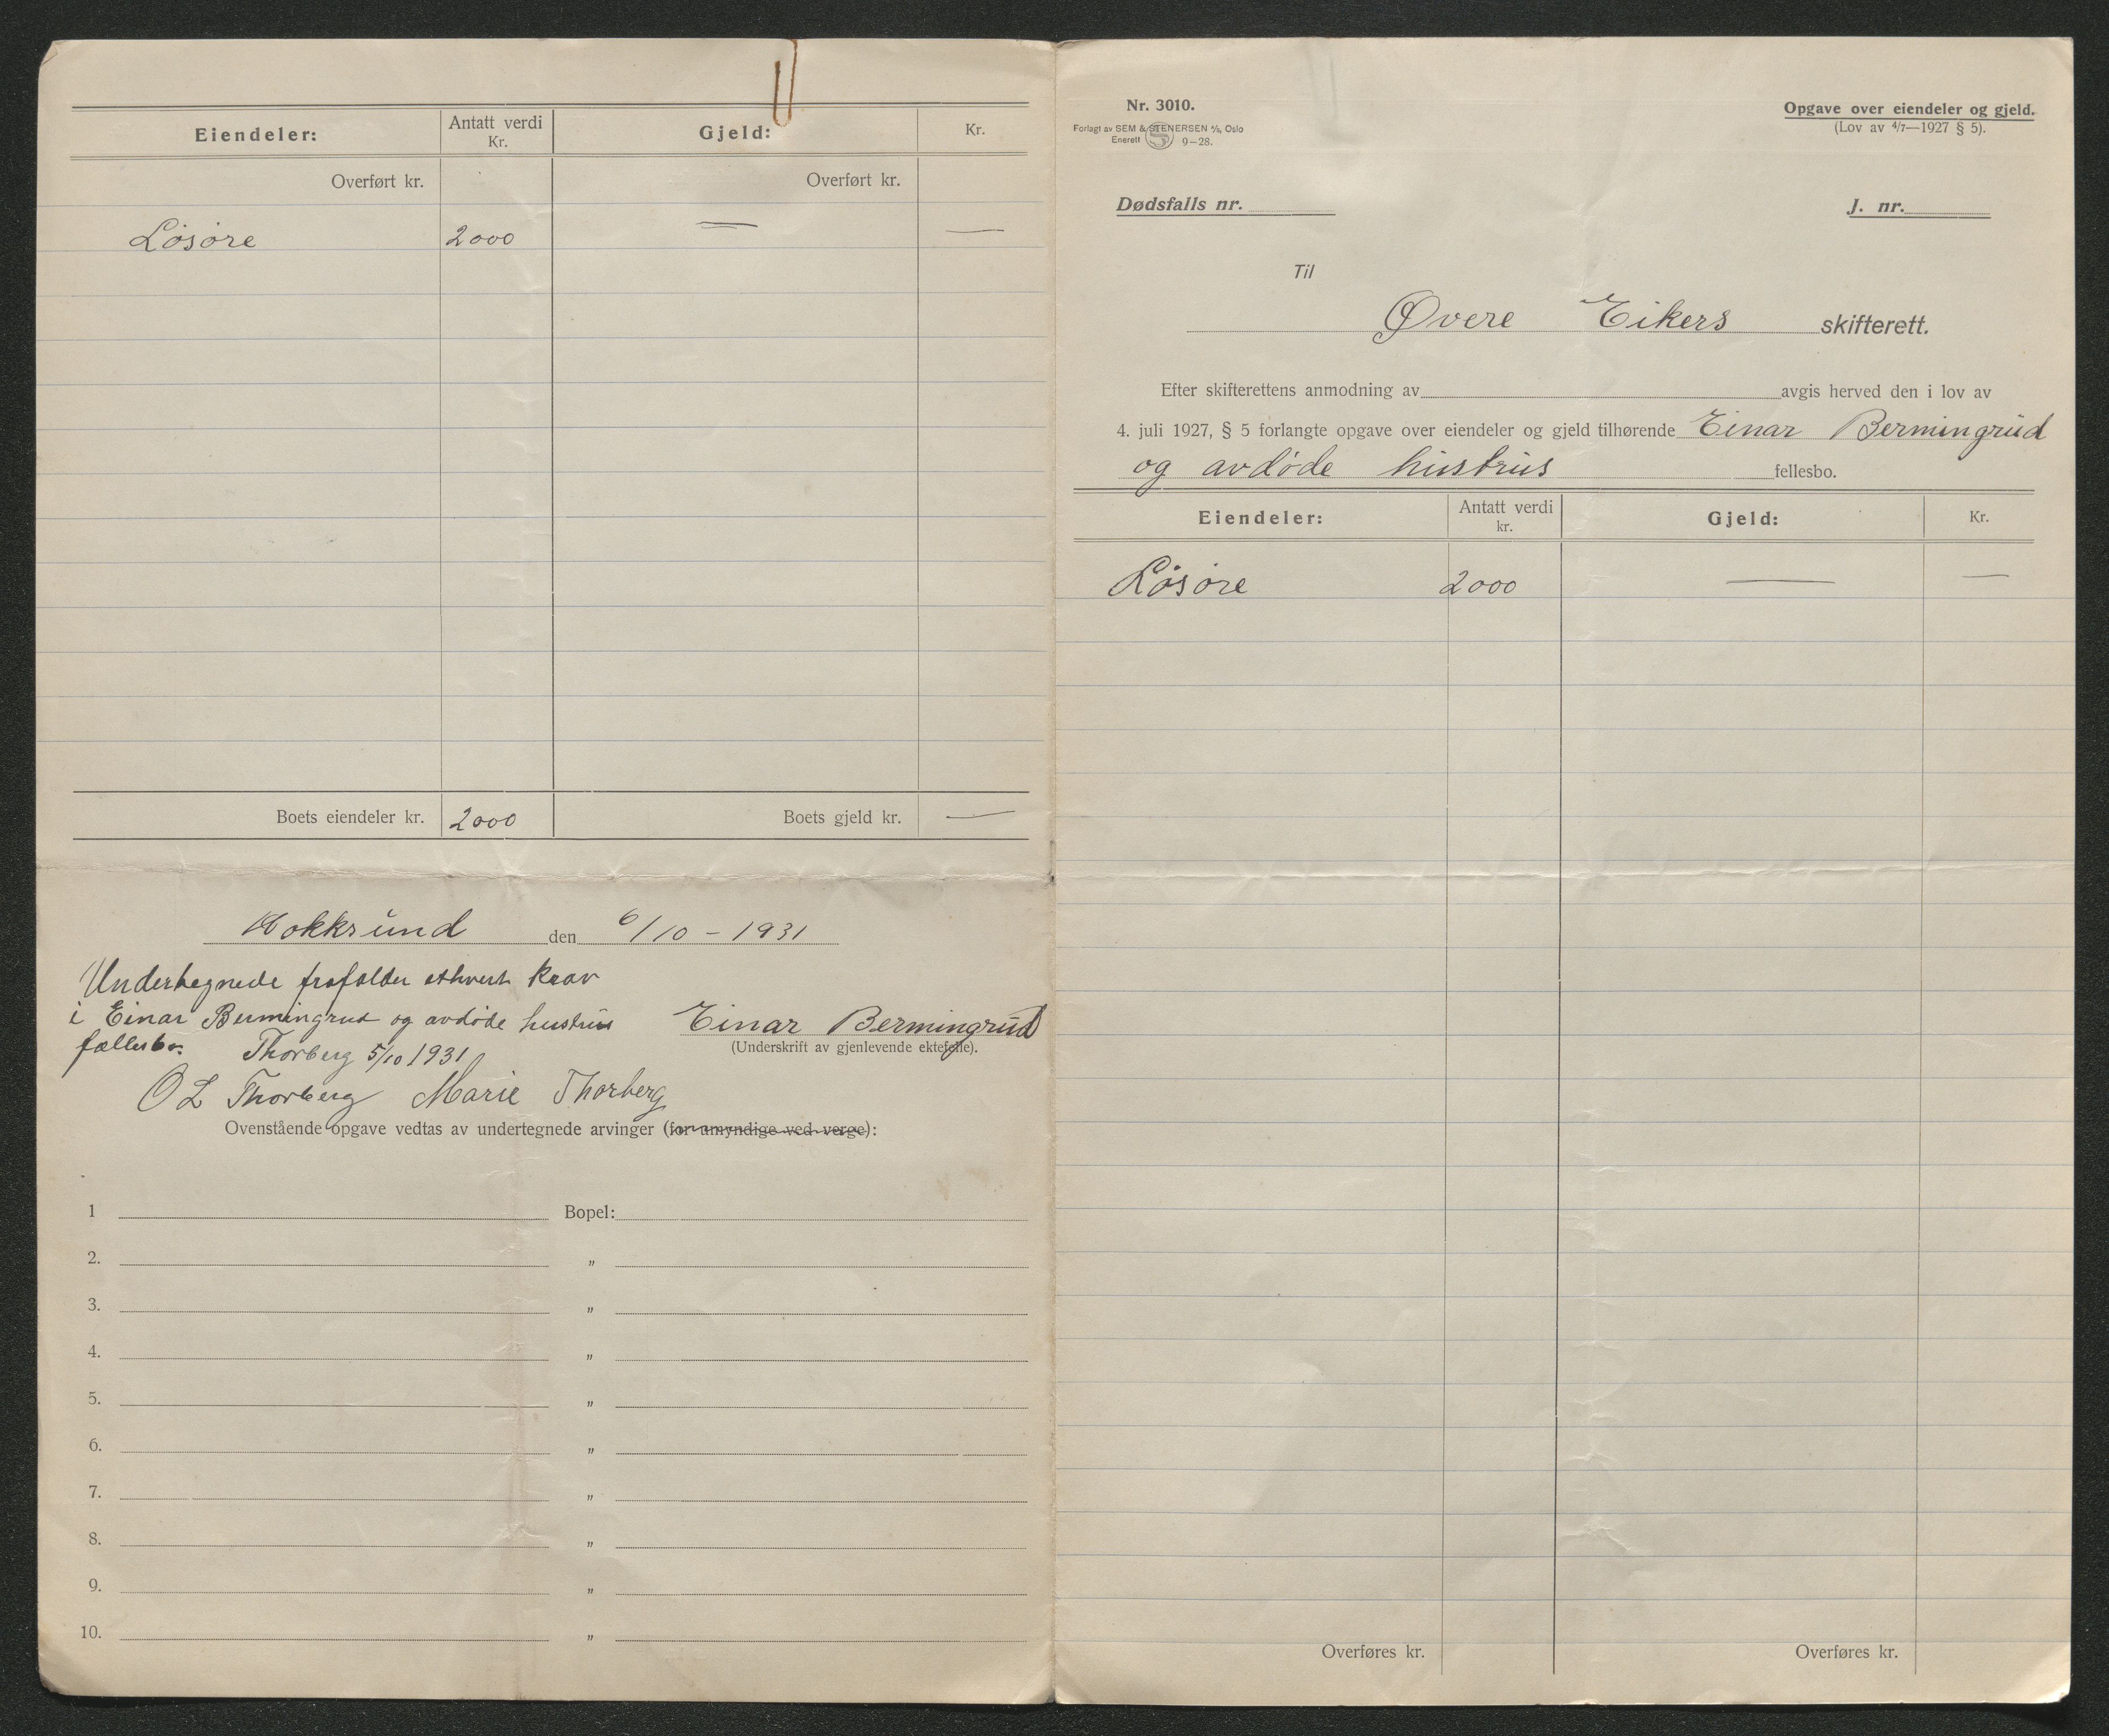 Eiendeler: Antatt verdi Kr. Gjeld: Kr.
Overført kr. Overført kr.
Løsøre 2000 — —
Boets eiendeler kr. 2000 Boets gjeld kr. —
Hokksund den 6/10 - 1931
Undertegnede frafalder ethvert krav
i Einar Bermingrud og avdøde hustrus
fællesbo. Thorberg 5/10 1931
Einar Bermingrud
(Underskrift av gjenlevende ektefelle).
O L Thorberg Marie Thorberg
Ovenstående opgave vedtas av undertegnede arvinger (for umyndige ved verge):
1 Bopel:
2. "
3. "
4. "
5. "
6. "
7. "
8. "
9. "
10. "
Nr. 3010.
Forlagt av SEM & STENERSEN A/S, Oslo
Enerett S 9-28.
Opgave over eiendeler og gjeld.
(Lov av 4/7—1927 § 5).
Dødsfalls nr. J. nr.
Til
Øvere Eikers skifterett.
Efter skifterettens anmodning av avgis herved den i lov av
4. juli 1927, § 5 forlangte opgave over eiendeler og gjeld tilhørende Einar Bermingrud
og avdøde hustrus fellesbo.
Eiendeler: Antatt verdi kr. Gjeld: Kr.
Løsøre 2000 — —
Overføres kr. Overføres kr.